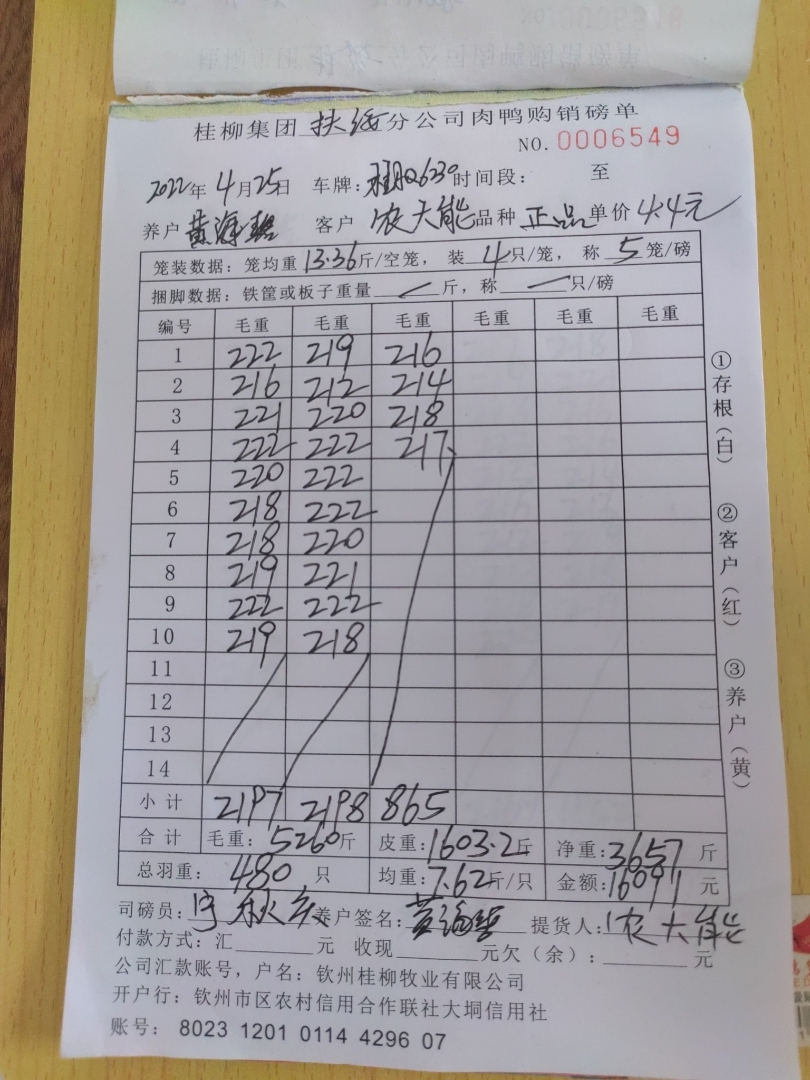 桂柳集团扶绥分公司肉鸭购销磅单
NO. 0006549
2022年4月25日 车牌: 时间段: 至
养户 黄海 客户 农大能 品种 正品 单价 4.4元
笼装数据: 笼均重 13.36 斤/空笼, 装 4 只/笼, 称 5 笼/磅
捆脚数据: 铁筐或板子重量 斤, 称 只/磅
编号 毛重 毛重 毛重 毛重 毛重 毛重
1 222 219 216
2 216 212 214
3 221 220 218
4 222 222 217
5 220 222
6 218 222
7 218 220
8 219 221
9 222 222
10 219 218
11
12
13
14
小计 2197 2198 865
合计 毛重: 5260斤 皮重: 1603.2斤 净重: 3657 斤
总羽重: 480 只 均重: 7.62斤/只 金额: 16091 元
司磅员: 养户签名: 黄海 提货人: 农大能
付款方式: 汇 元 收现 元欠(余): 元
公司汇款账号, 户名: 钦州桂柳牧业有限公司
开户行: 钦州市区农村信用合作联社大垌信用社
账号: 8023 1201 0114 4296 07
①存根(白)
②客户(红)
③养户(黄)